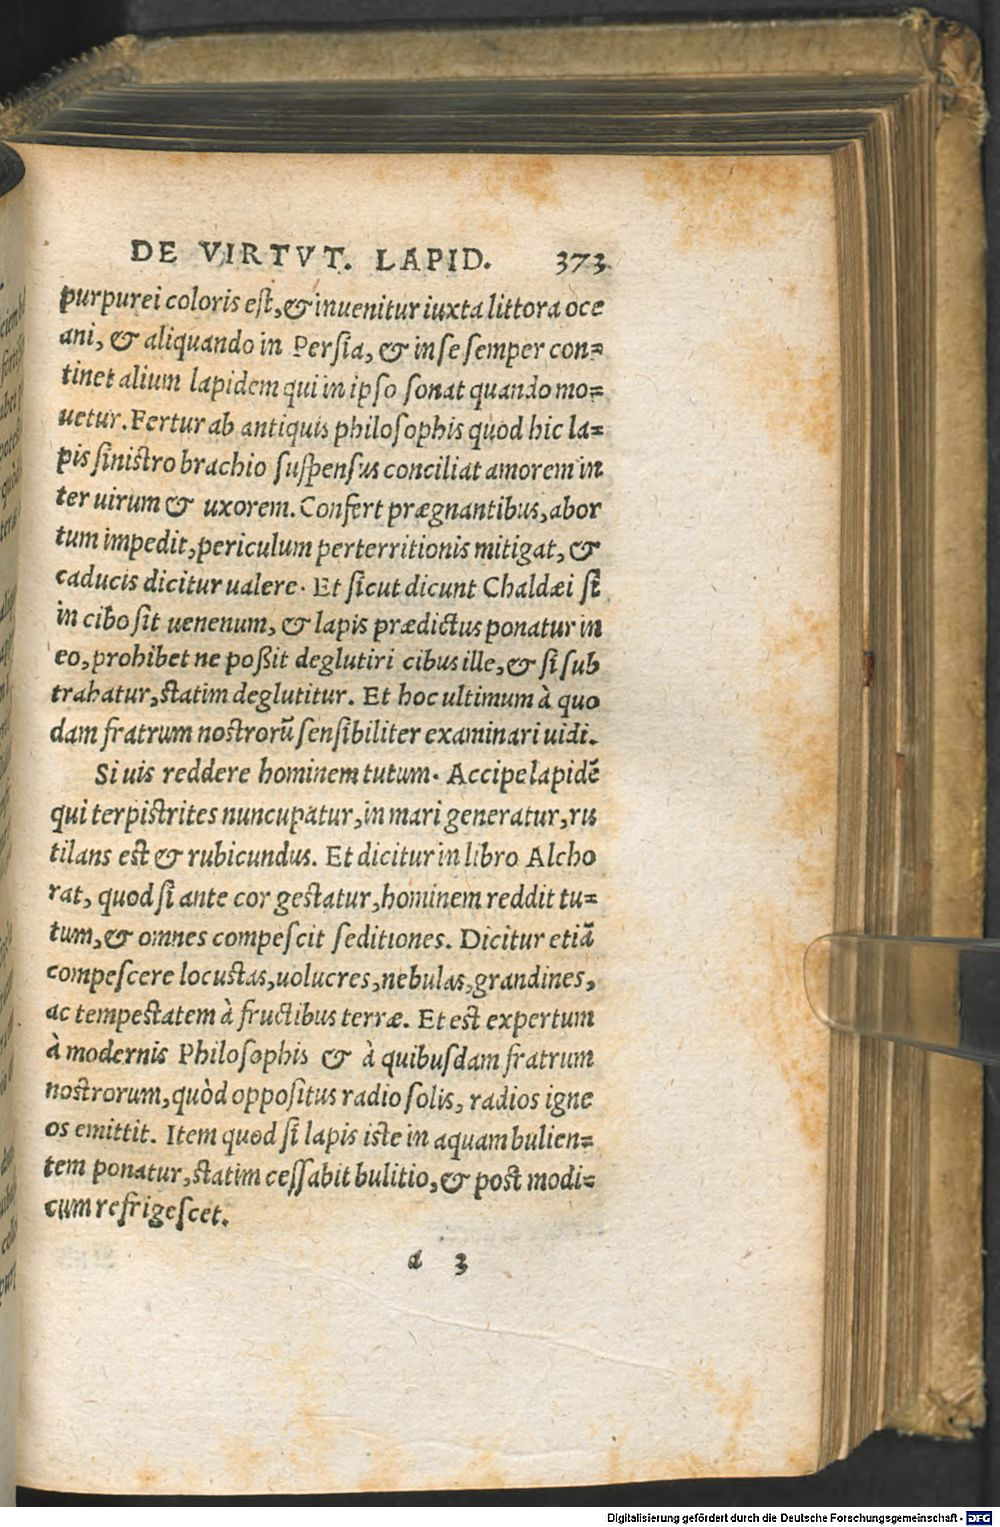 DE VIRTVT. LAPID. 373
purpurei coloris eſt, & inuenitur iuxta littora oce
ani, & aliquando in Perſia, & in ſe ſemper con=
tinet alium lapidem qui in ipſo ſonat quando mo=
uetur. Fertur ab antiquis philoſophis quòd hic la=
pis ſiniſtro brachio ſuſpenſus conciliat amorem in
ter uirum & uxorem. Confert prægnantibus, abor
tum impedit, periculum perterritionis mitigat, &
caducis dicitur ualere. Et ſicut dicunt Chaldæi ſi
in cibo ſit uenenum, & lapis prædictus ponatur in
eo, prohibet ne poßit deglutiri cibus ille, & ſi ſub
trahatur, ſtatim deglutitur. Et hoc ultimum à quo
dam fratrum noſtrorũ ſenſibiliter examinari uidi.
Si uis reddere hominem tutum. Accipe lapidẽ
qui terpiſtrites nuncupatur, in mari generatur, ru
tilans eſt & rubicundus. Et dicitur in libro Alcho
rat, quod ſi ante cor geſtatur, hominem reddit tu=
tum, & omnes compeſcit ſeditiones. Dicitur etiã
compeſcere locuſtas, uolucres, nebulas, grandines,
ac tempeſtatem à fructibus terræ. Et eſt expertum
à modernis Philoſophis & à quibuſdam fratrum
noſtrorum, quòd oppoſitus radio ſolis, radios igne
os emittit. Item quod ſi lapis iſte in aquam bulien=
tem ponatur, ſtatim ceſſabit bulitio, & poſt modi=
cum refrigeſcet.
a 3
Digitalisierung gefördert durch die Deutsche Forschungsgemeinschaft - DFG